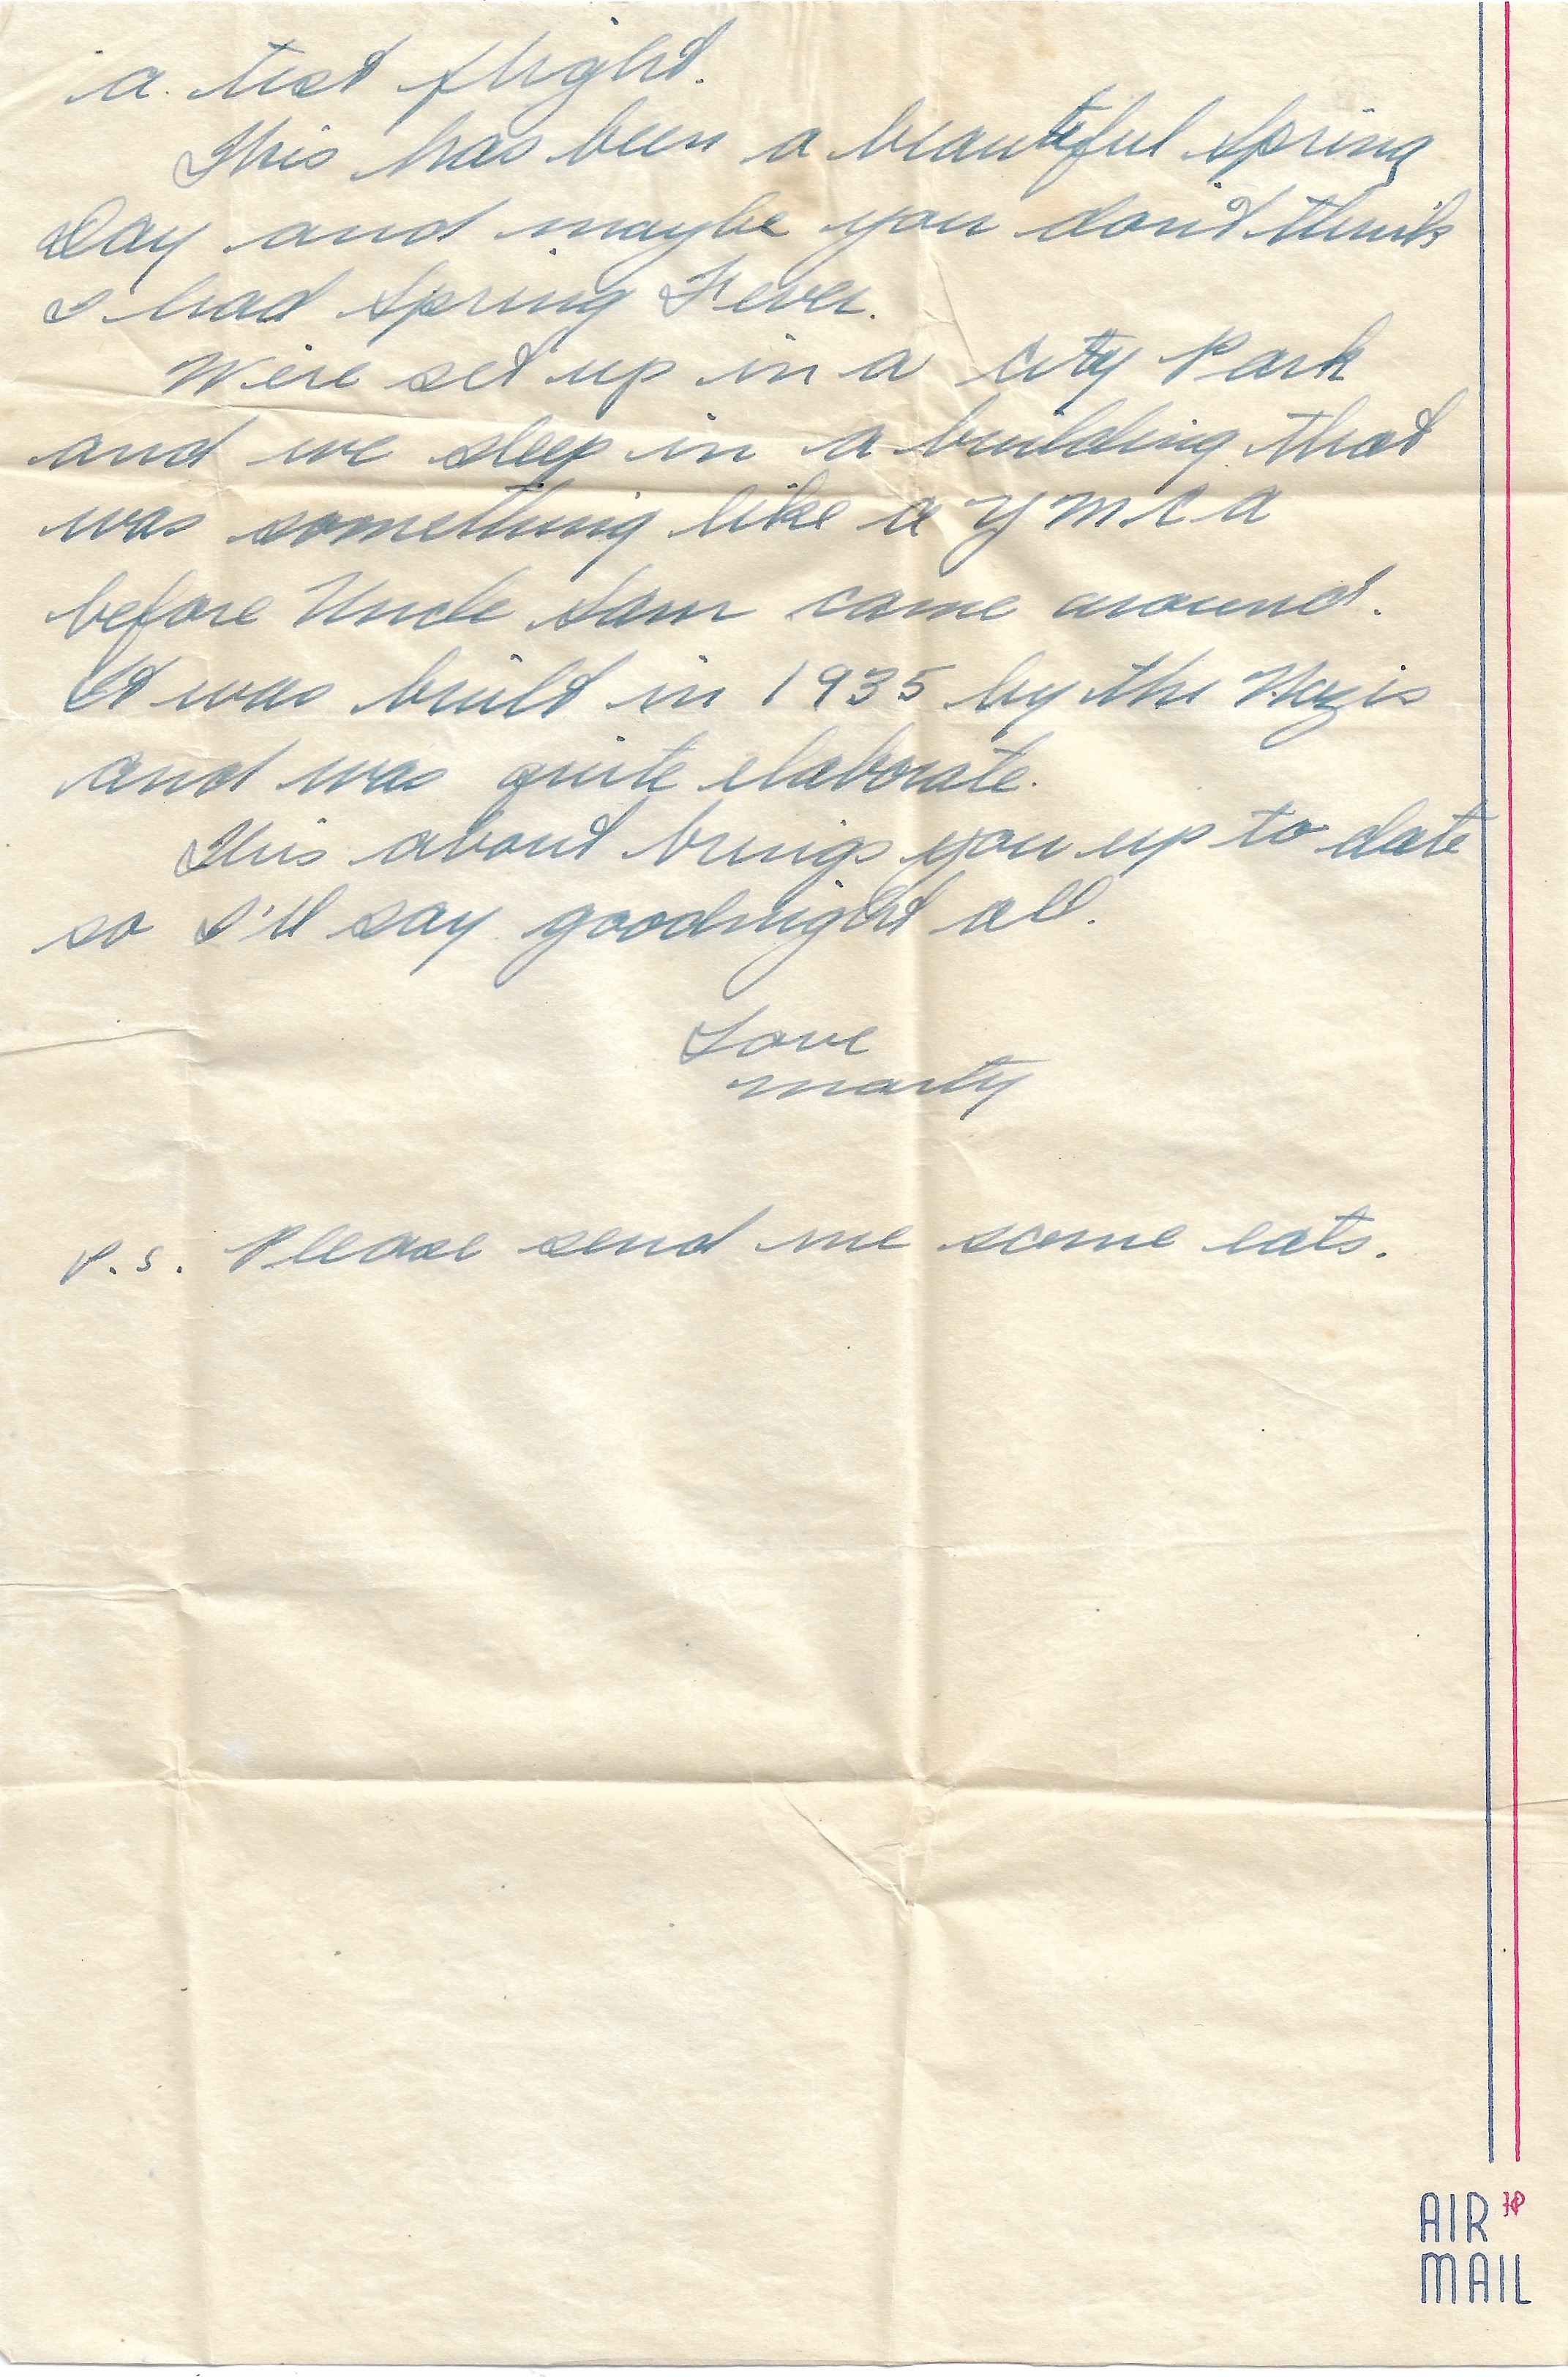 a test flight.
This has been a beautiful Spring
Day and maybe you don't think
I had Spring Fever.
We're set up in a City Park
and we sleep in a building that
was something like a Y M C A
before Uncle Sam came around.
It was built in 1935 by the Nazis
and was quite elaborate.
This about brings you up to date
so I'll say goodnight all.
Love
Marty
P.S. Please send me some eats.
AIR
MAIL